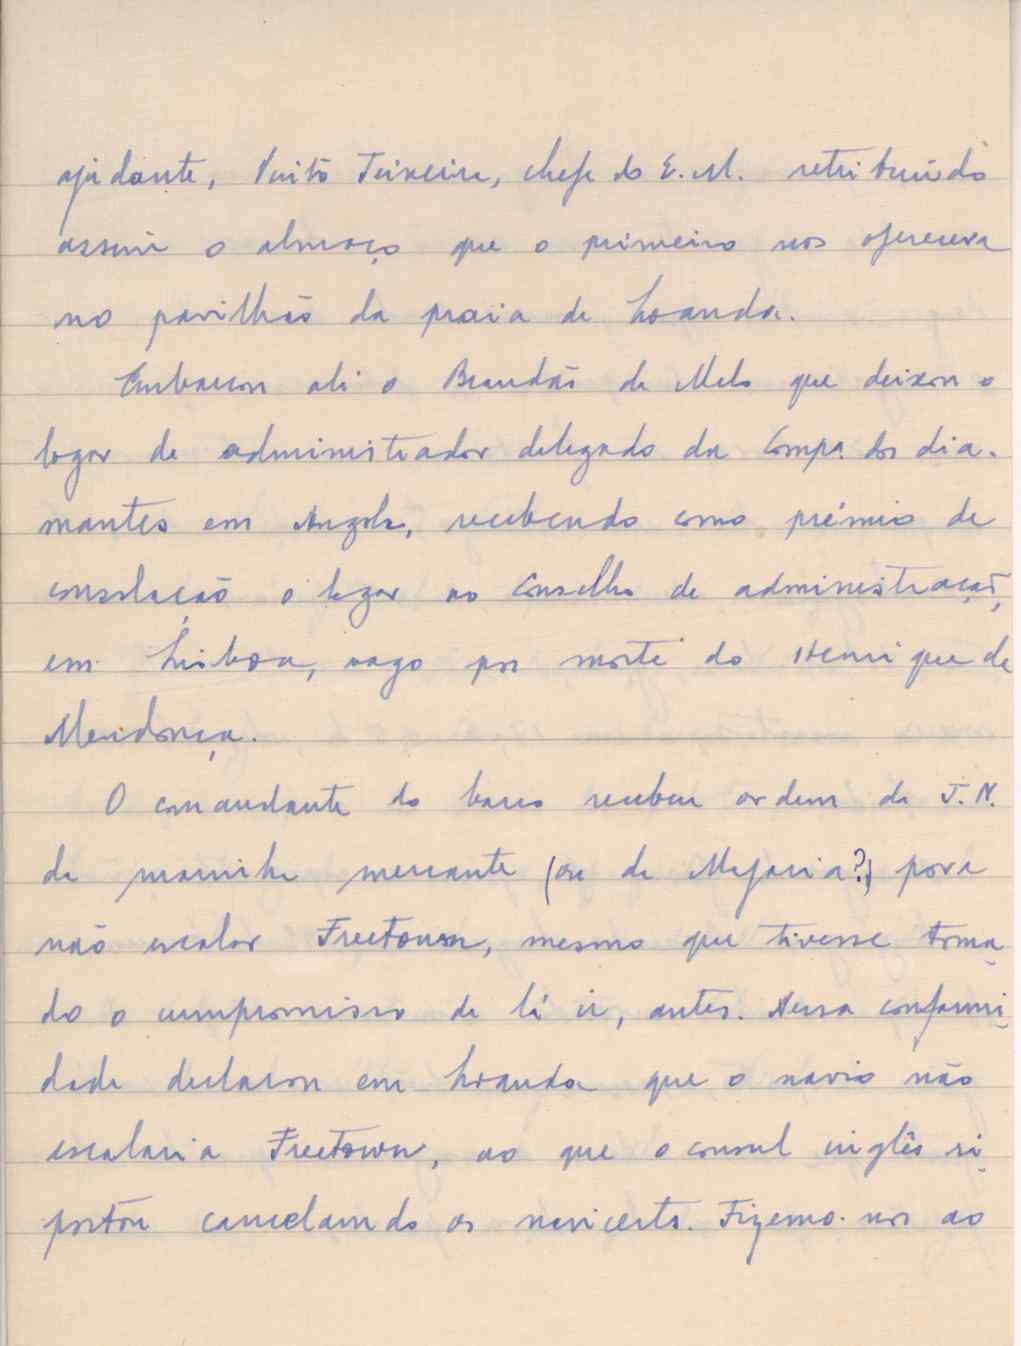 ajudante, Pinto Teixeira, chefe do E. M. retribuindo
assim o almoço que o primeiro nos oferecera
no pavilhão da praia de Loanda.
Embarcou ali o Brandão de Melo que deixou o
logar de administrador delegado da Compª. dos dia-
mantes em Angola, recebendo como prémio de
consolação o logar no Conselho de administração,
em Lisboa, vago por morte do Henrique de
Mendonça.
O comandante do barco recebeu ordem da J. N.
da marinha mercante (ou da Majoria?) para
não escalar Freetown, mesmo que tivesse toma-
do o compromisso de lá ir, antes. Nessa conformi-
dade declarou em Loanda que o navio não
escalaria Freetown, ao que o consul inglês ri-
postou cancelando os navicerts. Fizemo-nos ao